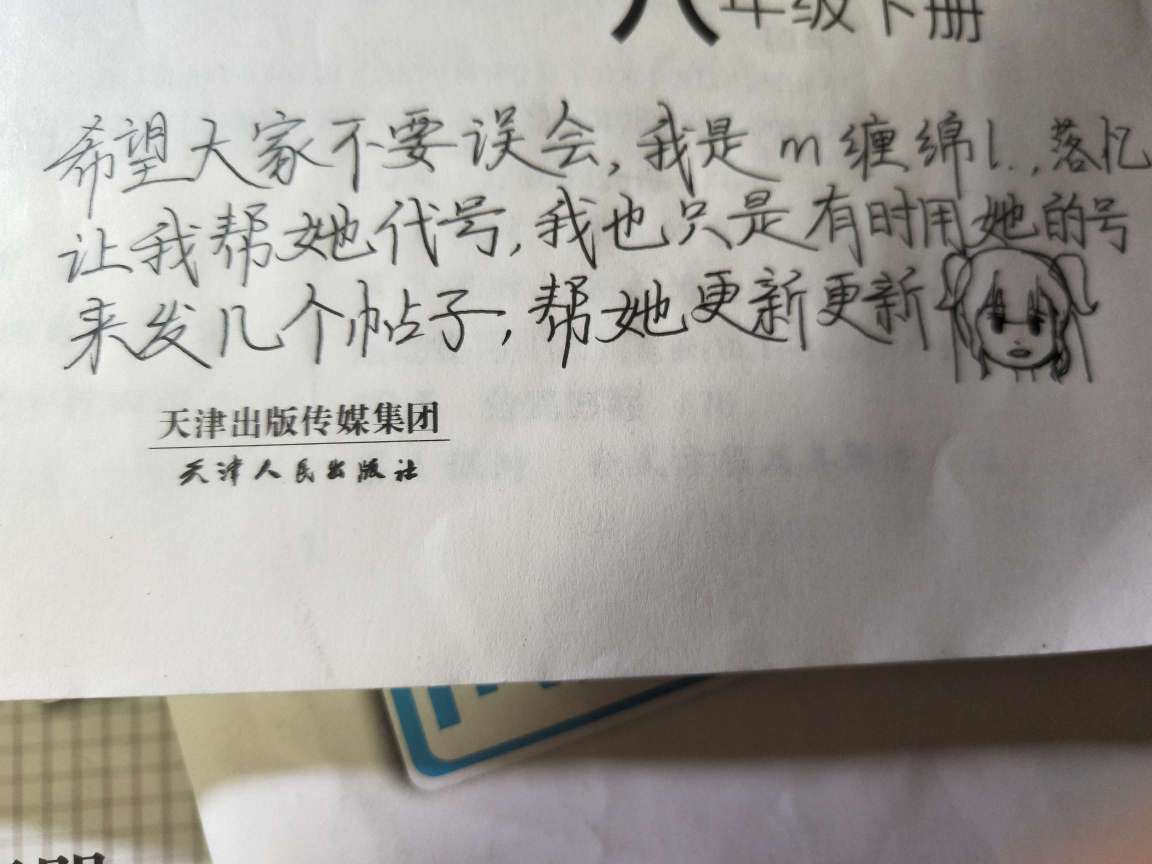 八年级下册
希望大家不要误会,我是m缠绵l..,落忆
让我帮她代号,我也只是有时用她的号
来发几个帖子,帮她更新更新
天津出版传媒集团
天津人民出版社